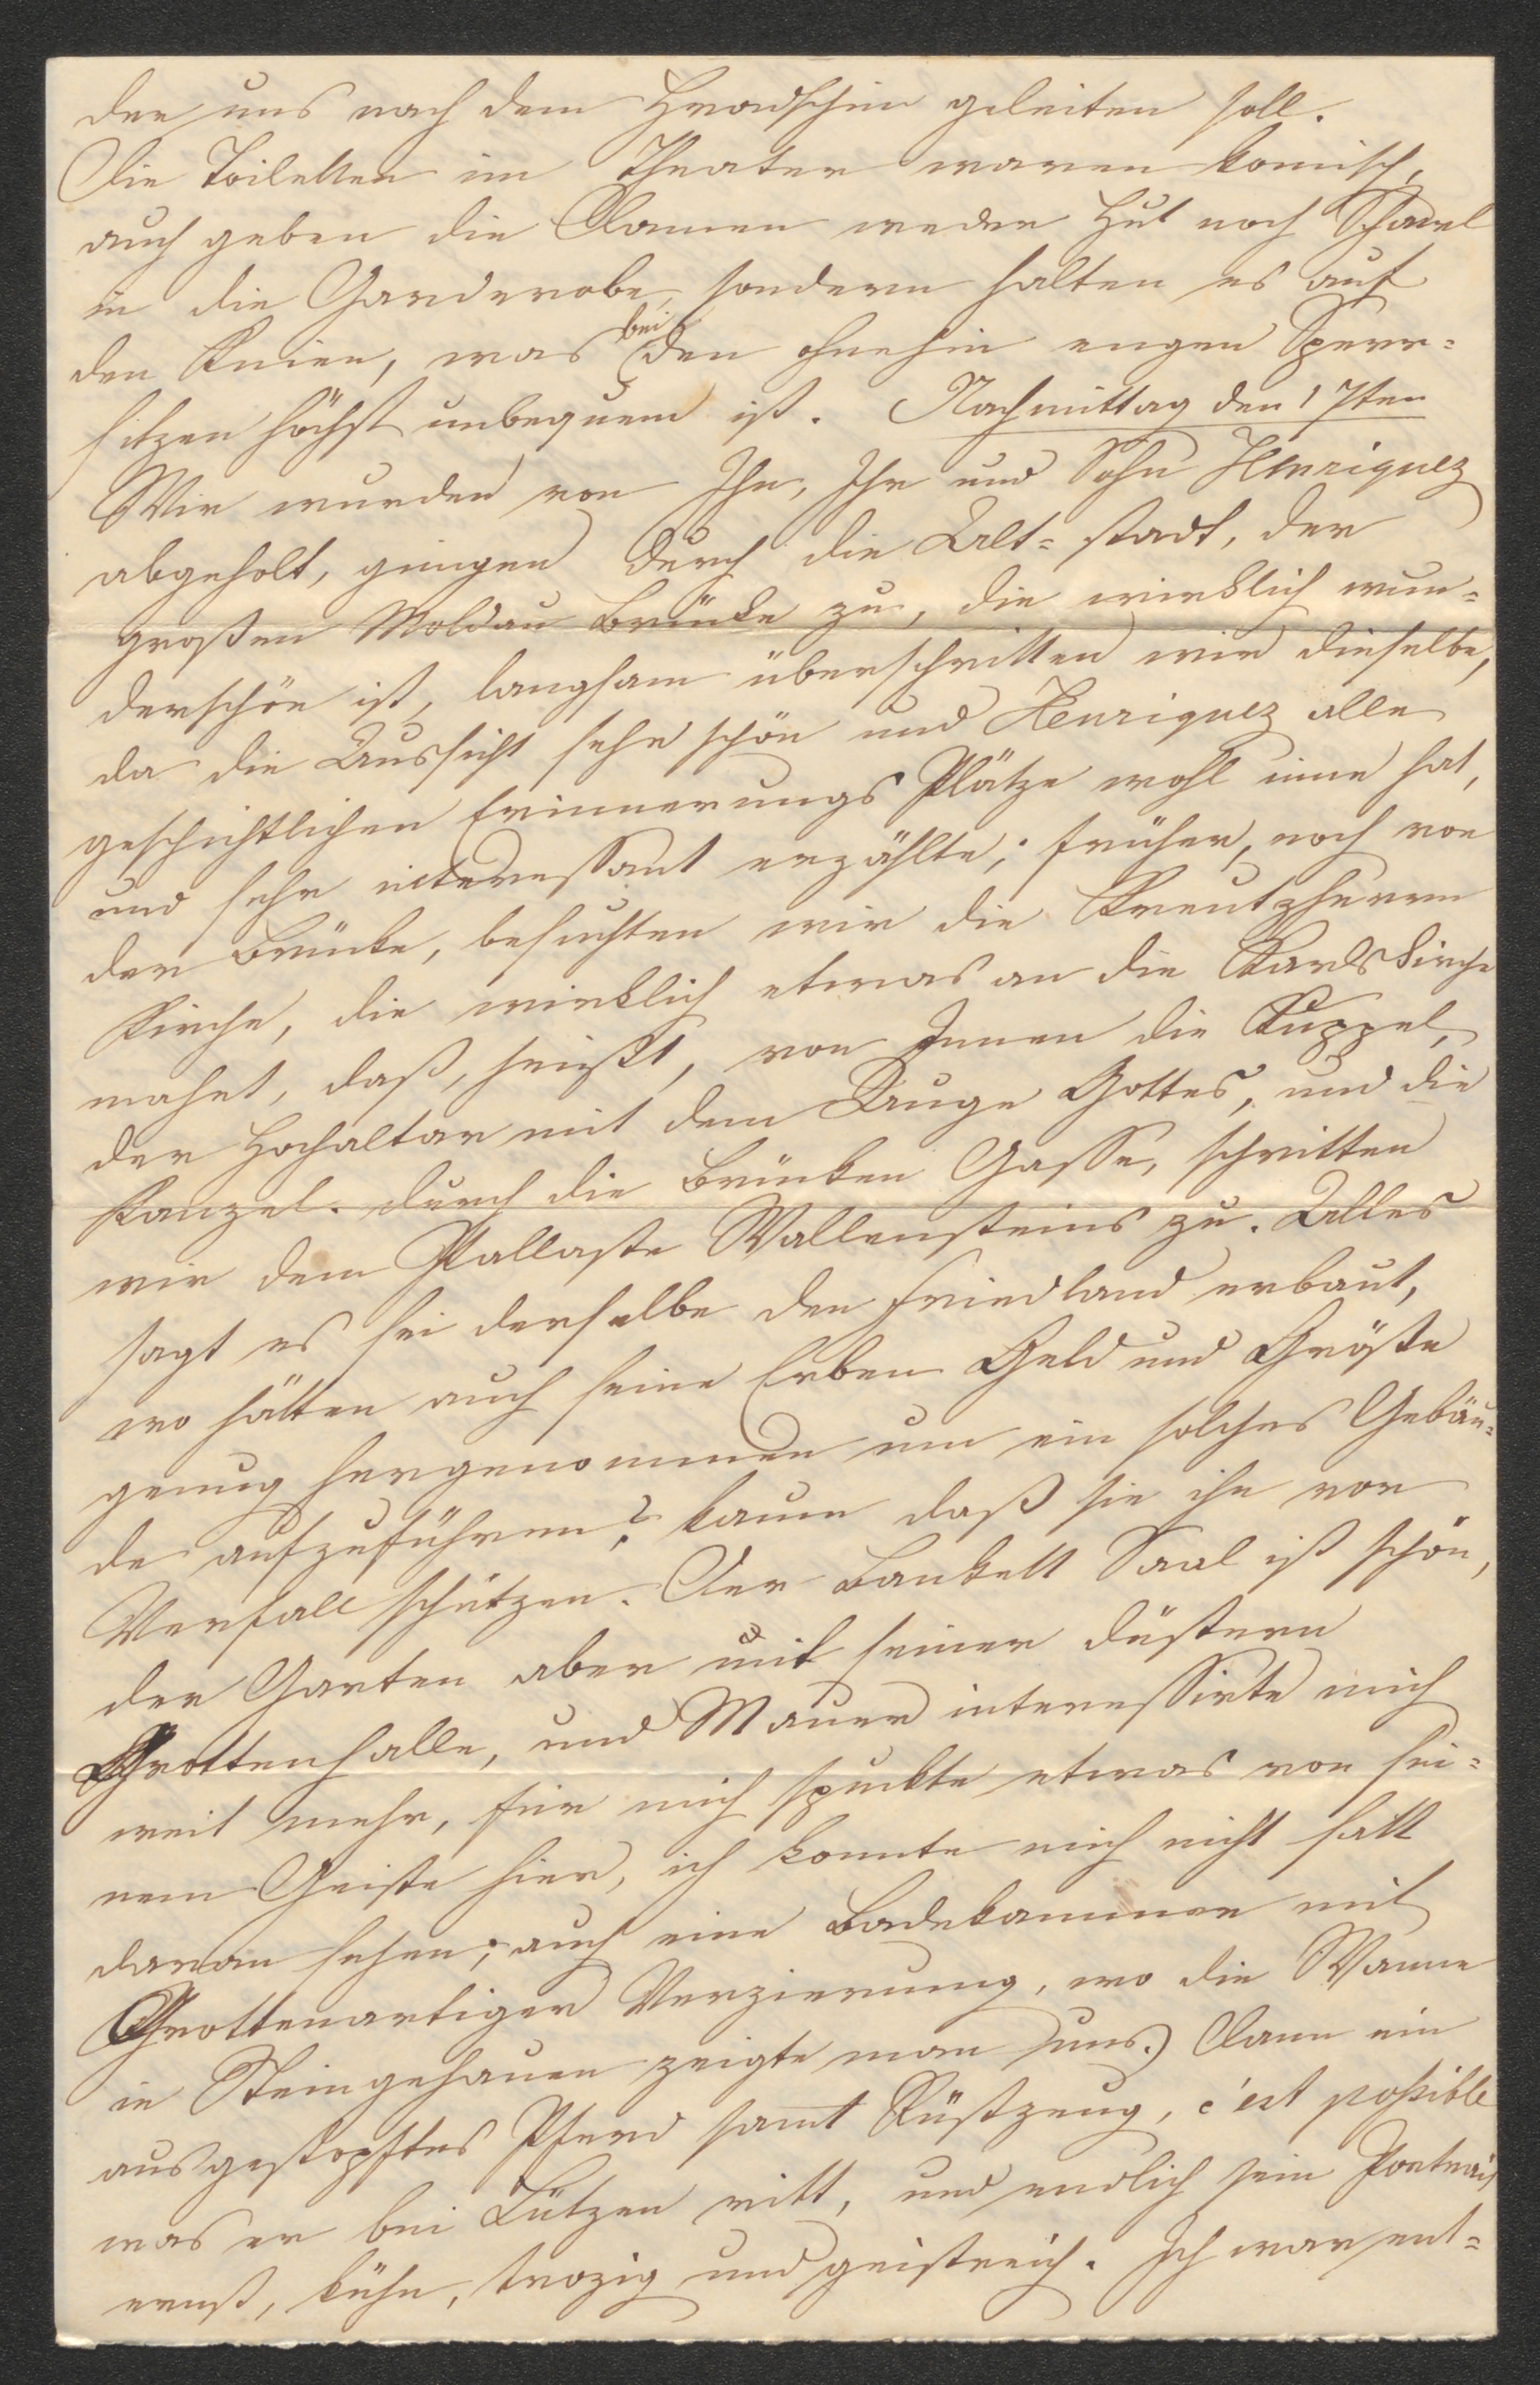 der uns nach dem Hradschin geleiten soll.
Die Toiletten im Theater waren komisch,
auch geben die Damen weder Hut noch Schawl
in die Garderobe, sondern halten es auf
den Knien, was bei den ohnehin engen Sperr=
sitzen höchst unbequem ist. Nachmittag den 17ten
Wir wurden von Ihn, Ihr und Sohn Henriquez
abgeholt, gingen durch die Alt=stadt, der
großen Moldau Brücke zu, die wirklich wun=
derschön ist, langsam überschritten wir dieselbe,
da die Aussicht sehr schön und Henriquez alle
geschichtlichen Erinnerungs Plätze wohl inne hat,
und sehr interessant erzählte; früher, noch vor
der Brücke, besuchten wir die Kreutzherrn
Kirche, die wirklich etwas an die Karlskirche
mahnt, daß, heißt, von Innen die Kuppel,
der Hochaltar mit dem Auge Gottes, und die
Kanzel. durch die Brücken Gasse, schritten
wir dem Pallaste Wallensteins zu. Alles
sagt es sei derselbe den Friedland erbaut,
wo hätten auch seine Erben Geld und Größe
genug hergenommen um ein solches Gebäu=
de aufzuführen? kaum daß sie ihn vor
Verfall schützen. Der Bankett Saal ist schön,
der Garten aber mit seiner düstern
Grottenhalle, und Mauer interessirte mich
weit mehr, für mich spuckte etwas von sei=
nem Geiste hier, ich konnte mich nicht satt
daran sehen; auch eine Badekammer mit
Grottenartiger Verzierung, wo die Wanne
in Stein gehauen zeigte man uns. Dann ein
ausgestopftes Pferd samt Rüstzeug, c'est possible
was er bei Lützen ritt, und endlich sein Portrait
ernst, kühn, trozig und geistreich. Ich war ent=